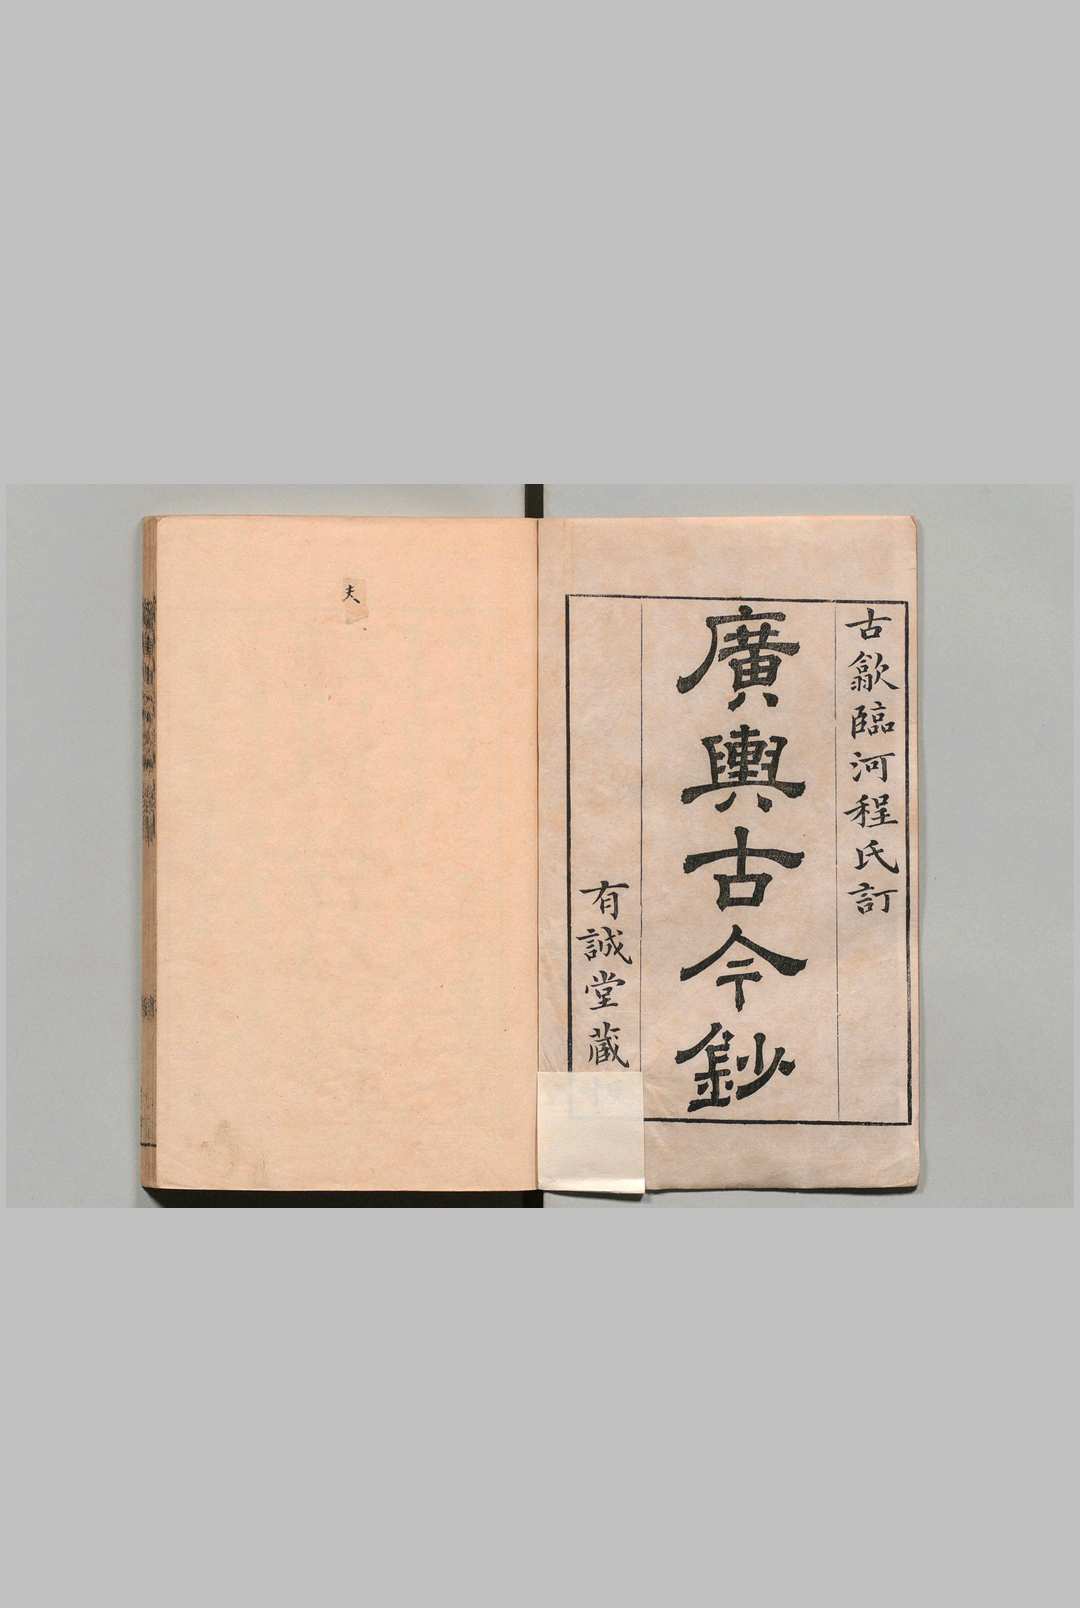 古歙臨河程氏訂
廣輿古今鈔
有誠堂藏